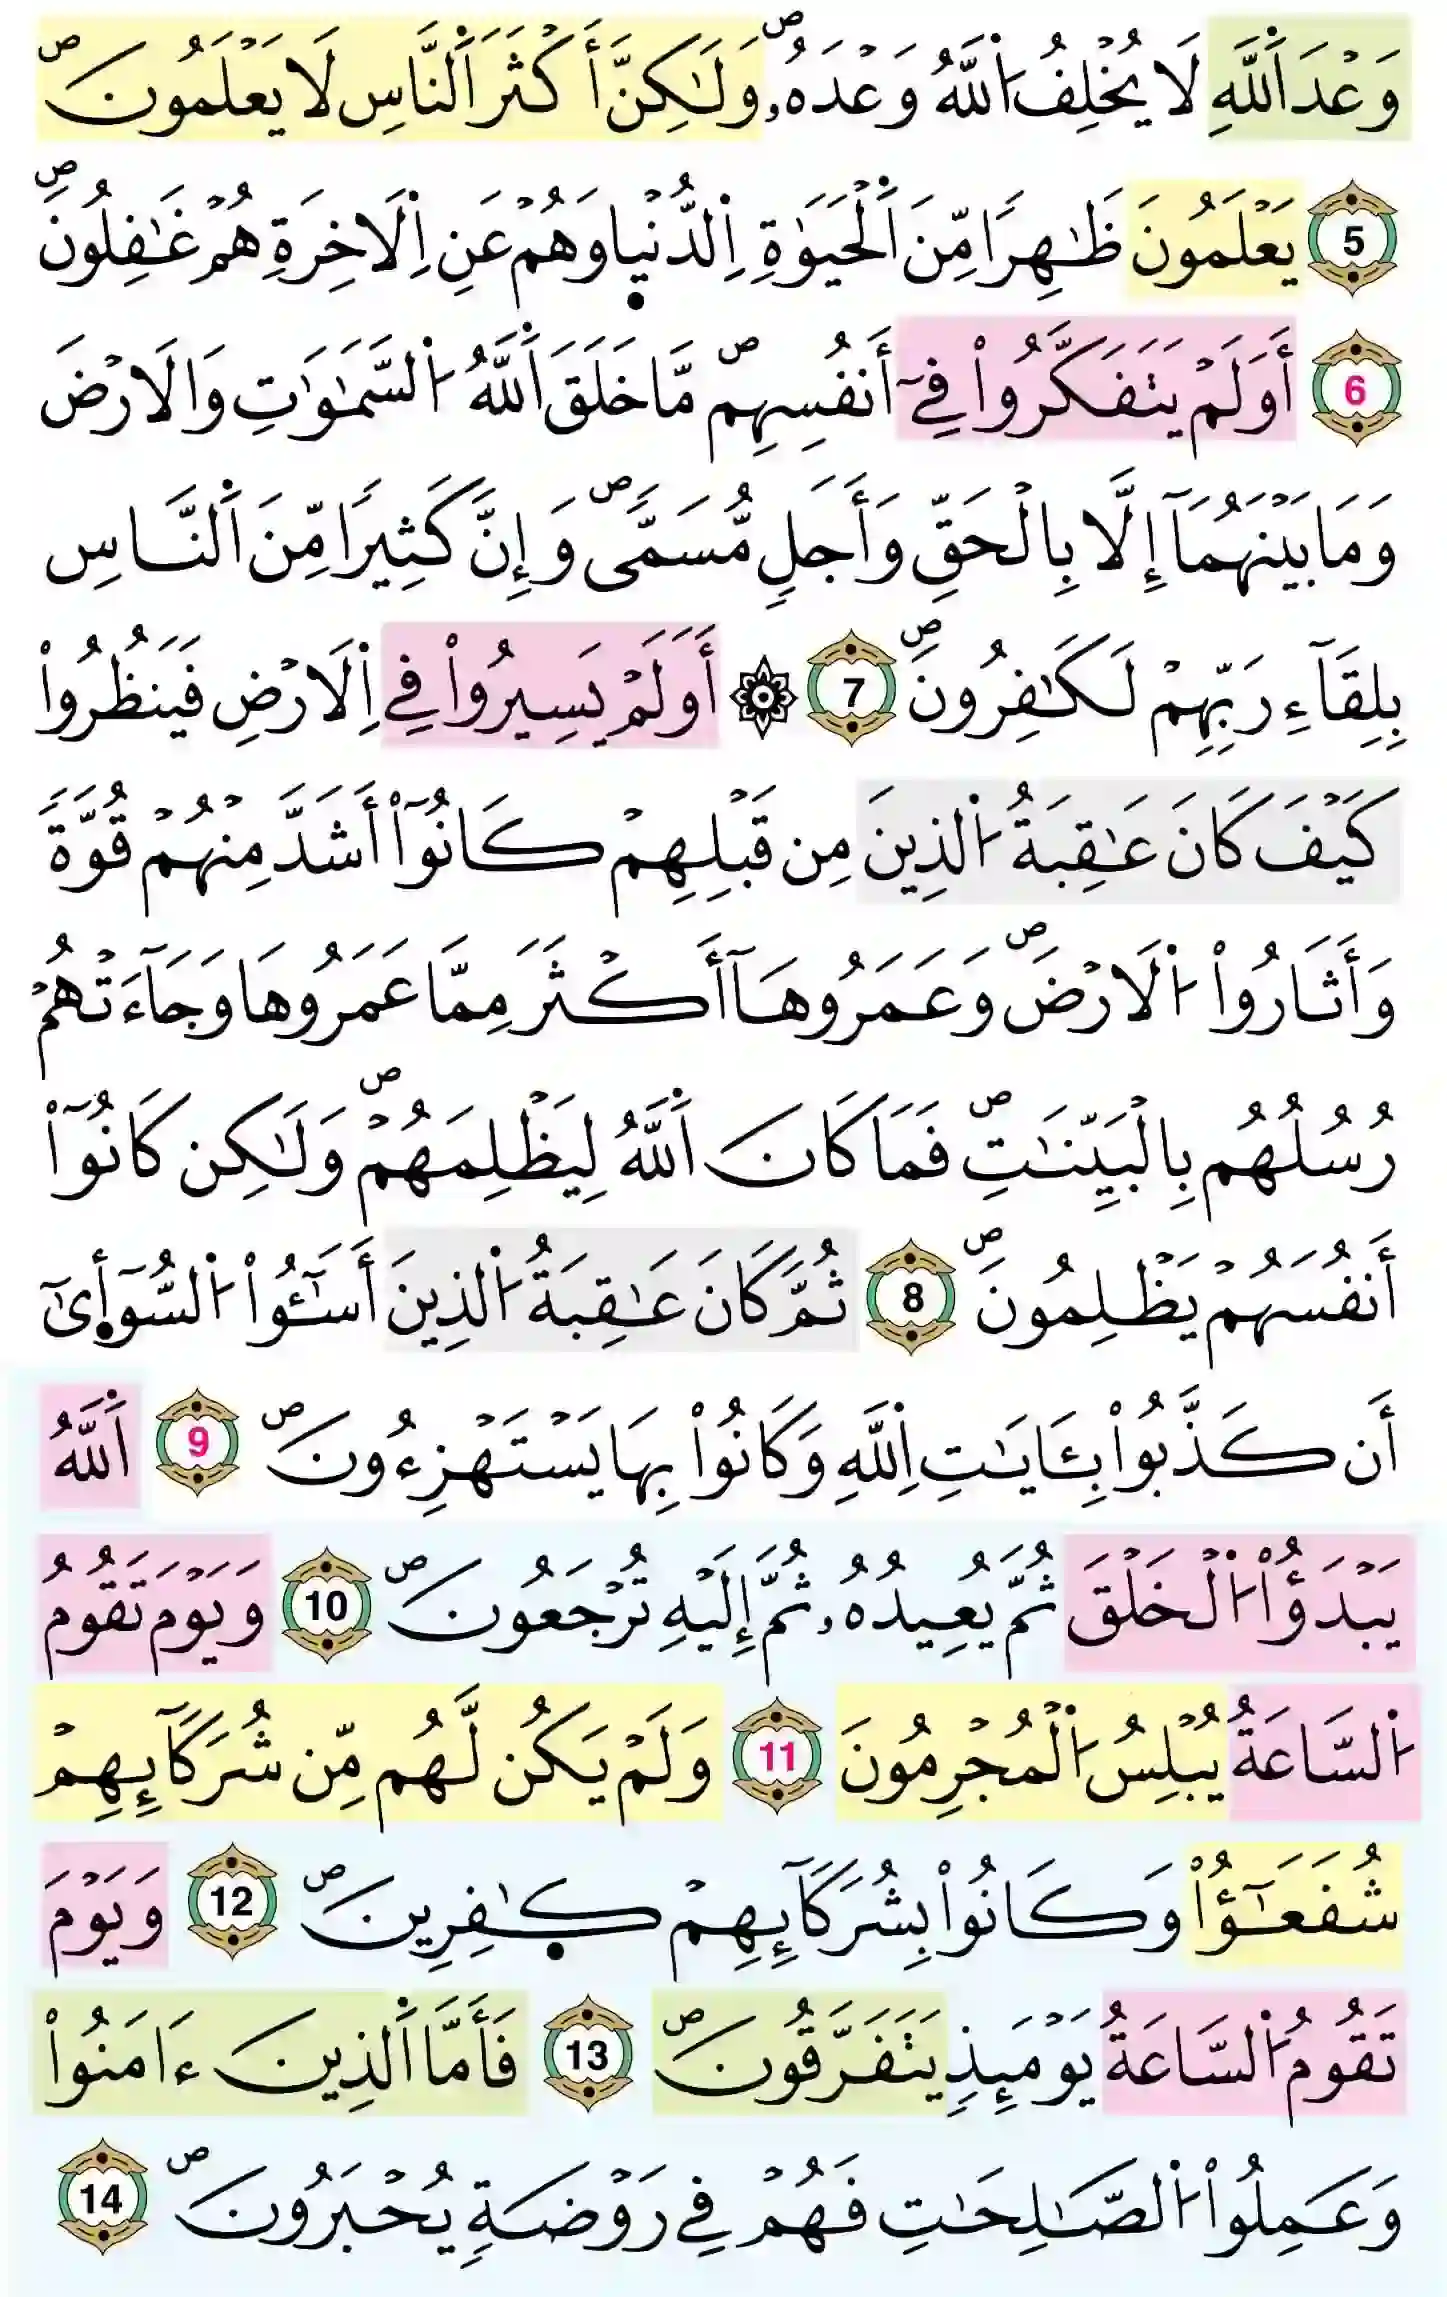 وَعْدَ اَ۬للَّهِ لَا يُخْلِفُ اُ۬للَّهُ وَعْدَهُۥۖ وَلَٰكِنَّ أَكْثَرَ اَ۬لنَّاسِ لَا يَعْلَمُونَۖ
5 يَعْلَمُونَ ظَٰهِراٗ مِّنَ اَ۬لْحَيَوٰةِ اِ۬لدُّنْي۪ا وَهُمْ عَنِ اِ۬لَاخِرَةِ هُمْ غَٰفِلُونَۖ
6 أَوَلَمْ يَتَفَكَّرُواْ فِےٓ أَنفُسِهِمۖ مَّا خَلَقَ اَ۬للَّهُ اُ۬لسَّمَٰوَٰتِ وَالَارْضَ
وَمَا بَيْنَهُمَآ إِلَّا بِالْحَقِّ وَأَجَلٖ مُّسَمّيٗۖ وَإِنَّ كَثِيراٗ مِّنَ اَ۬لنَّاسِ
بِلِقَآءِ رَبِّهِمْ لَكَٰفِرُونَۖ 7 ۞ أَوَلَمْ يَسِيرُواْ فِے اِ۬لَارْضِ فَيَنظُرُواْ
كَيْفَ كَانَ عَٰقِبَةُ اُ۬لذِينَ مِن قَبْلِهِمْ كَانُوٓاْ أَشَدَّ مِنْهُمْ قُوَّةٗ
وَأَثَارُواْ اُ۬لَارْضَۖ وَعَمَرُوهَآ أَكْثَرَ مِمَّا عَمَرُوهَا وَجَآءَتْهُمْ
رُسُلُهُم بِالْبَيِّنَٰتِۖ فَمَا كَانَ اَ۬للَّهُ لِيَظْلِمَهُمْۖ وَلَٰكِن كَانُوٓاْ
أَنفُسَهُمْ يَظْلِمُونَۖ 8 ثُمَّ كَانَ عَٰقِبَةُ اُ۬لذِينَ أَسَٰٓـُٔواْ اُ۬لسُّوٓأ۪ىٰٓ
أَن كَذَّبُواْ بِـَٔايَٰتِ اِ۬للَّهِ وَكَانُواْ بِهَا يَسْتَهْزِءُونَۖ 9 اَ۬للَّهُ
يَبْدَؤُاْ اُ۬لْخَلْقَ ثُمَّ يُعِيدُهُۥ ثُمَّ إِلَيْهِ تُرْجَعُونَۖ 10 وَيَوْمَ تَقُومُ
اُ۬لسَّاعَةُ يُبْلِسُ اُ۬لْمُجْرِمُونَ 11 وَلَمْ يَكُن لَّهُم مِّن شُرَكَآئِهِمْ
شُفَعَٰٓؤُاْ وَكَانُواْ بِشُرَكَآئِهِمْ كٰ۪فِرِينَۖ 12 وَيَوْمَ
تَقُومُ اُ۬لسَّاعَةُ يَوْمَئِذٖ يَتَفَرَّقُونَۖ 13 فَأَمَّا اَ۬لذِينَ ءَامَنُواْ
وَعَمِلُواْ اُ۬لصَّٰلِحَٰتِ فَهُمْ فِے رَوْضَةٖ يُحْبَرُونَۖ 14